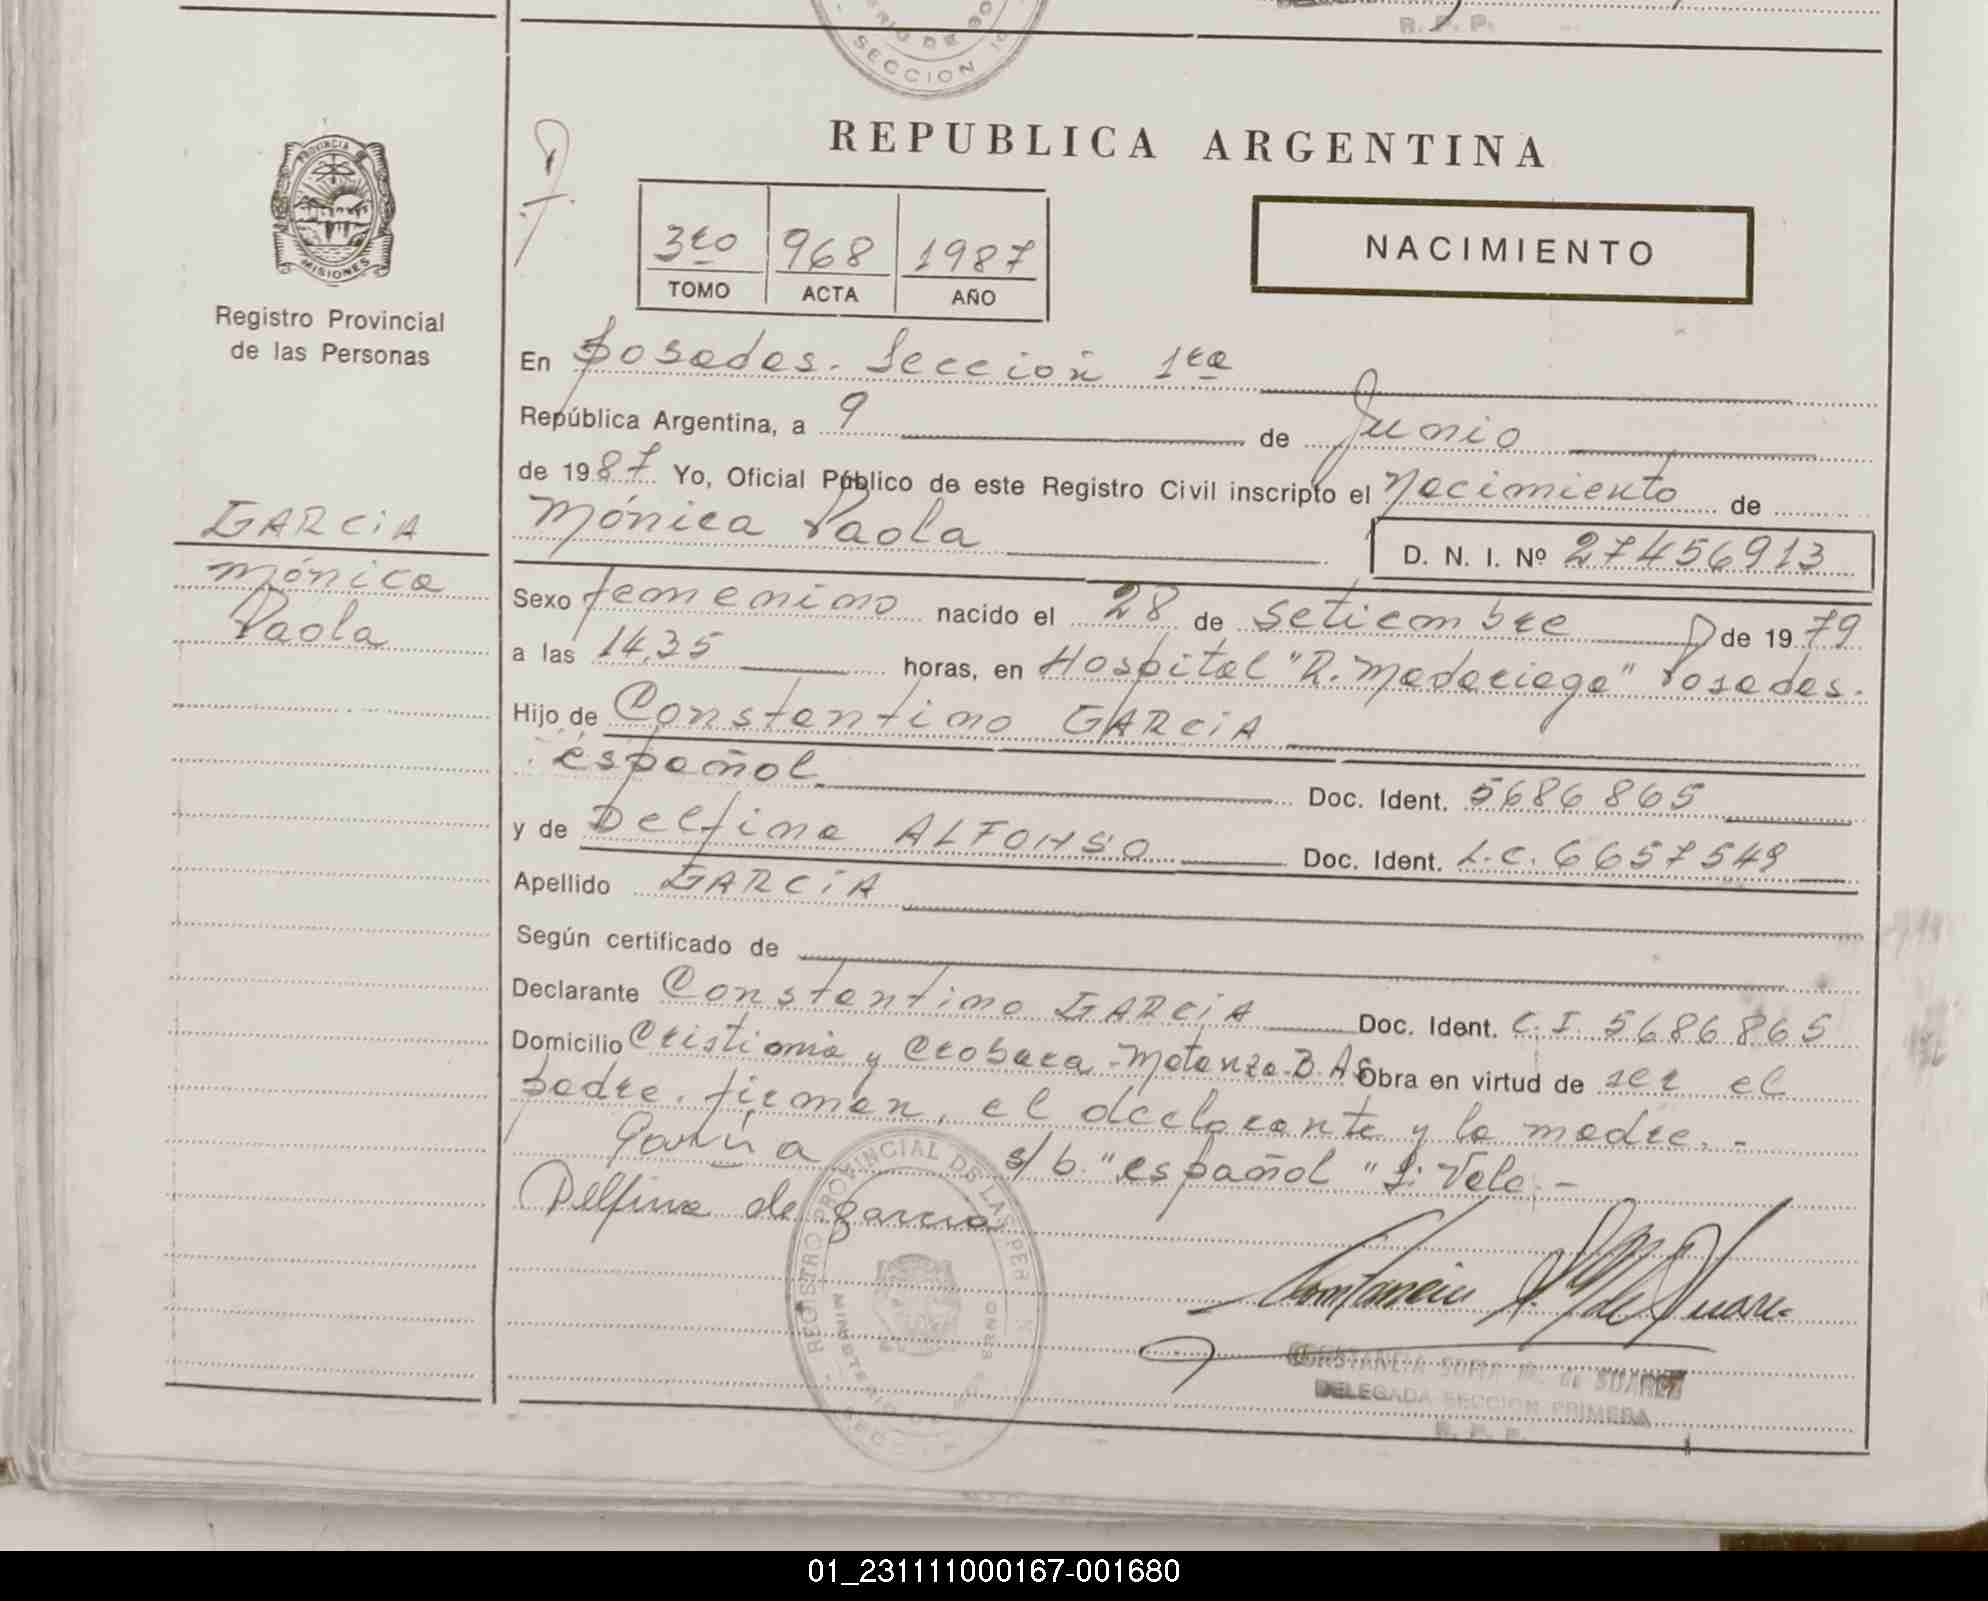 R. P. P.
SECCION
REPUBLICA ARGENTINA
PROVINCIA DE
MISIONES
Registro Provincial
de las Personas
3ro 968 1987
TOMO ACTA AÑO
NACIMIENTO
En Posadas. Sección 1ra
República Argentina, a 9 de Junio
de 1987 Yo, Oficial Público de este Registro Civil inscripto el Nacimiento de
Mónica Paola
D. N. I. Nº 27456913
GARCIA
Mónica
Paola
Sexo femenino nacido el 28 de Setiembre de 1979
a las 14,35 horas, en Hospital "R. Madariaga" Posadas.
Hijo de Constantino GARCIA
español Doc. Ident. 5686865
y de Delfina ALFONSO Doc. Ident. L.C. 6657549
Apellido GARCIA
Según certificado de
Declarante Constantino GARCIA Doc. Ident. C.I. 5686865
Domicilio Cristiania y Crobara - Matanza B. AS Obra en virtud de ser el
padre. firman, el declarante y la madre. -
García s/b. "español" S: Vale. -
Delfina de garcia
REGISTRO PROVINCIAL DE LAS PER
MINISTERIO DE
CONSTANCIA SOFIA M. de SUAREZ
DELEGADA SECCION PRIMERA
R. P. P.
01_231111000167-001680